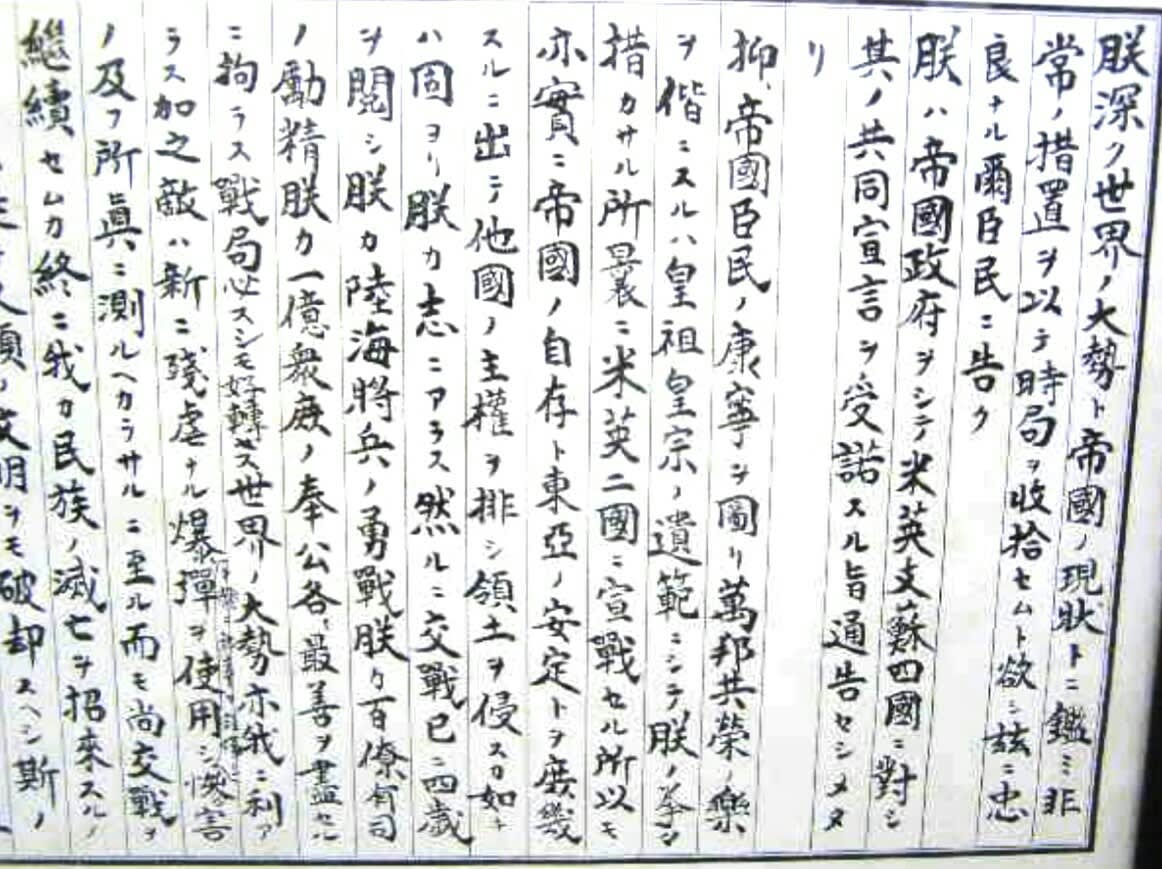 朕深ク世界ノ大勢ト帝國ノ現狀トニ鑑ミ非
常ノ措置ヲ以テ時局ヲ收拾セムト欲シ茲ニ忠
良ナル爾臣民ニ告ク
朕ハ帝國政府ヲシテ米英支蘇四國ニ對シ
其ノ共同宣言ヲ受諾スル旨通告セシメタ
リ
抑〻帝國臣民ノ康寧ヲ圖リ萬邦共榮ノ樂
ヲ偕ニスルハ皇祖皇宗ノ遺範ニシテ朕ノ拳〻
措カサル所曩ニ米英二國ニ宣戰セル所以モ
亦實ニ帝國ノ自存ト東亞ノ安定トヲ庶幾
スルニ出テ他國ノ主權ヲ排シ領土ヲ侵スカ如キ
ハ固ヨリ朕カ志ニアラス然ルニ交戰已ニ四歲
ヲ閱シ朕カ陸海將兵ノ勇戰朕カ百僚有司
ノ勵精朕カ一億衆庶ノ奉公各〻最善ヲ盡セル
ニ拘ラス戰局必スシモ好轉セス世界ノ大勢亦我ニ利ア
ラス加之敵ハ新ニ殘虐ナル爆彈ヲ使用シ慘害
ノ及フ所眞ニ測ルヘカラサルニ至ル而モ尚交戰ヲ
繼續セムカ終ニ我カ民族ノ滅亡ヲ招來スルノ
人類ノ文明ヲモ破却スヘシ斯ノ